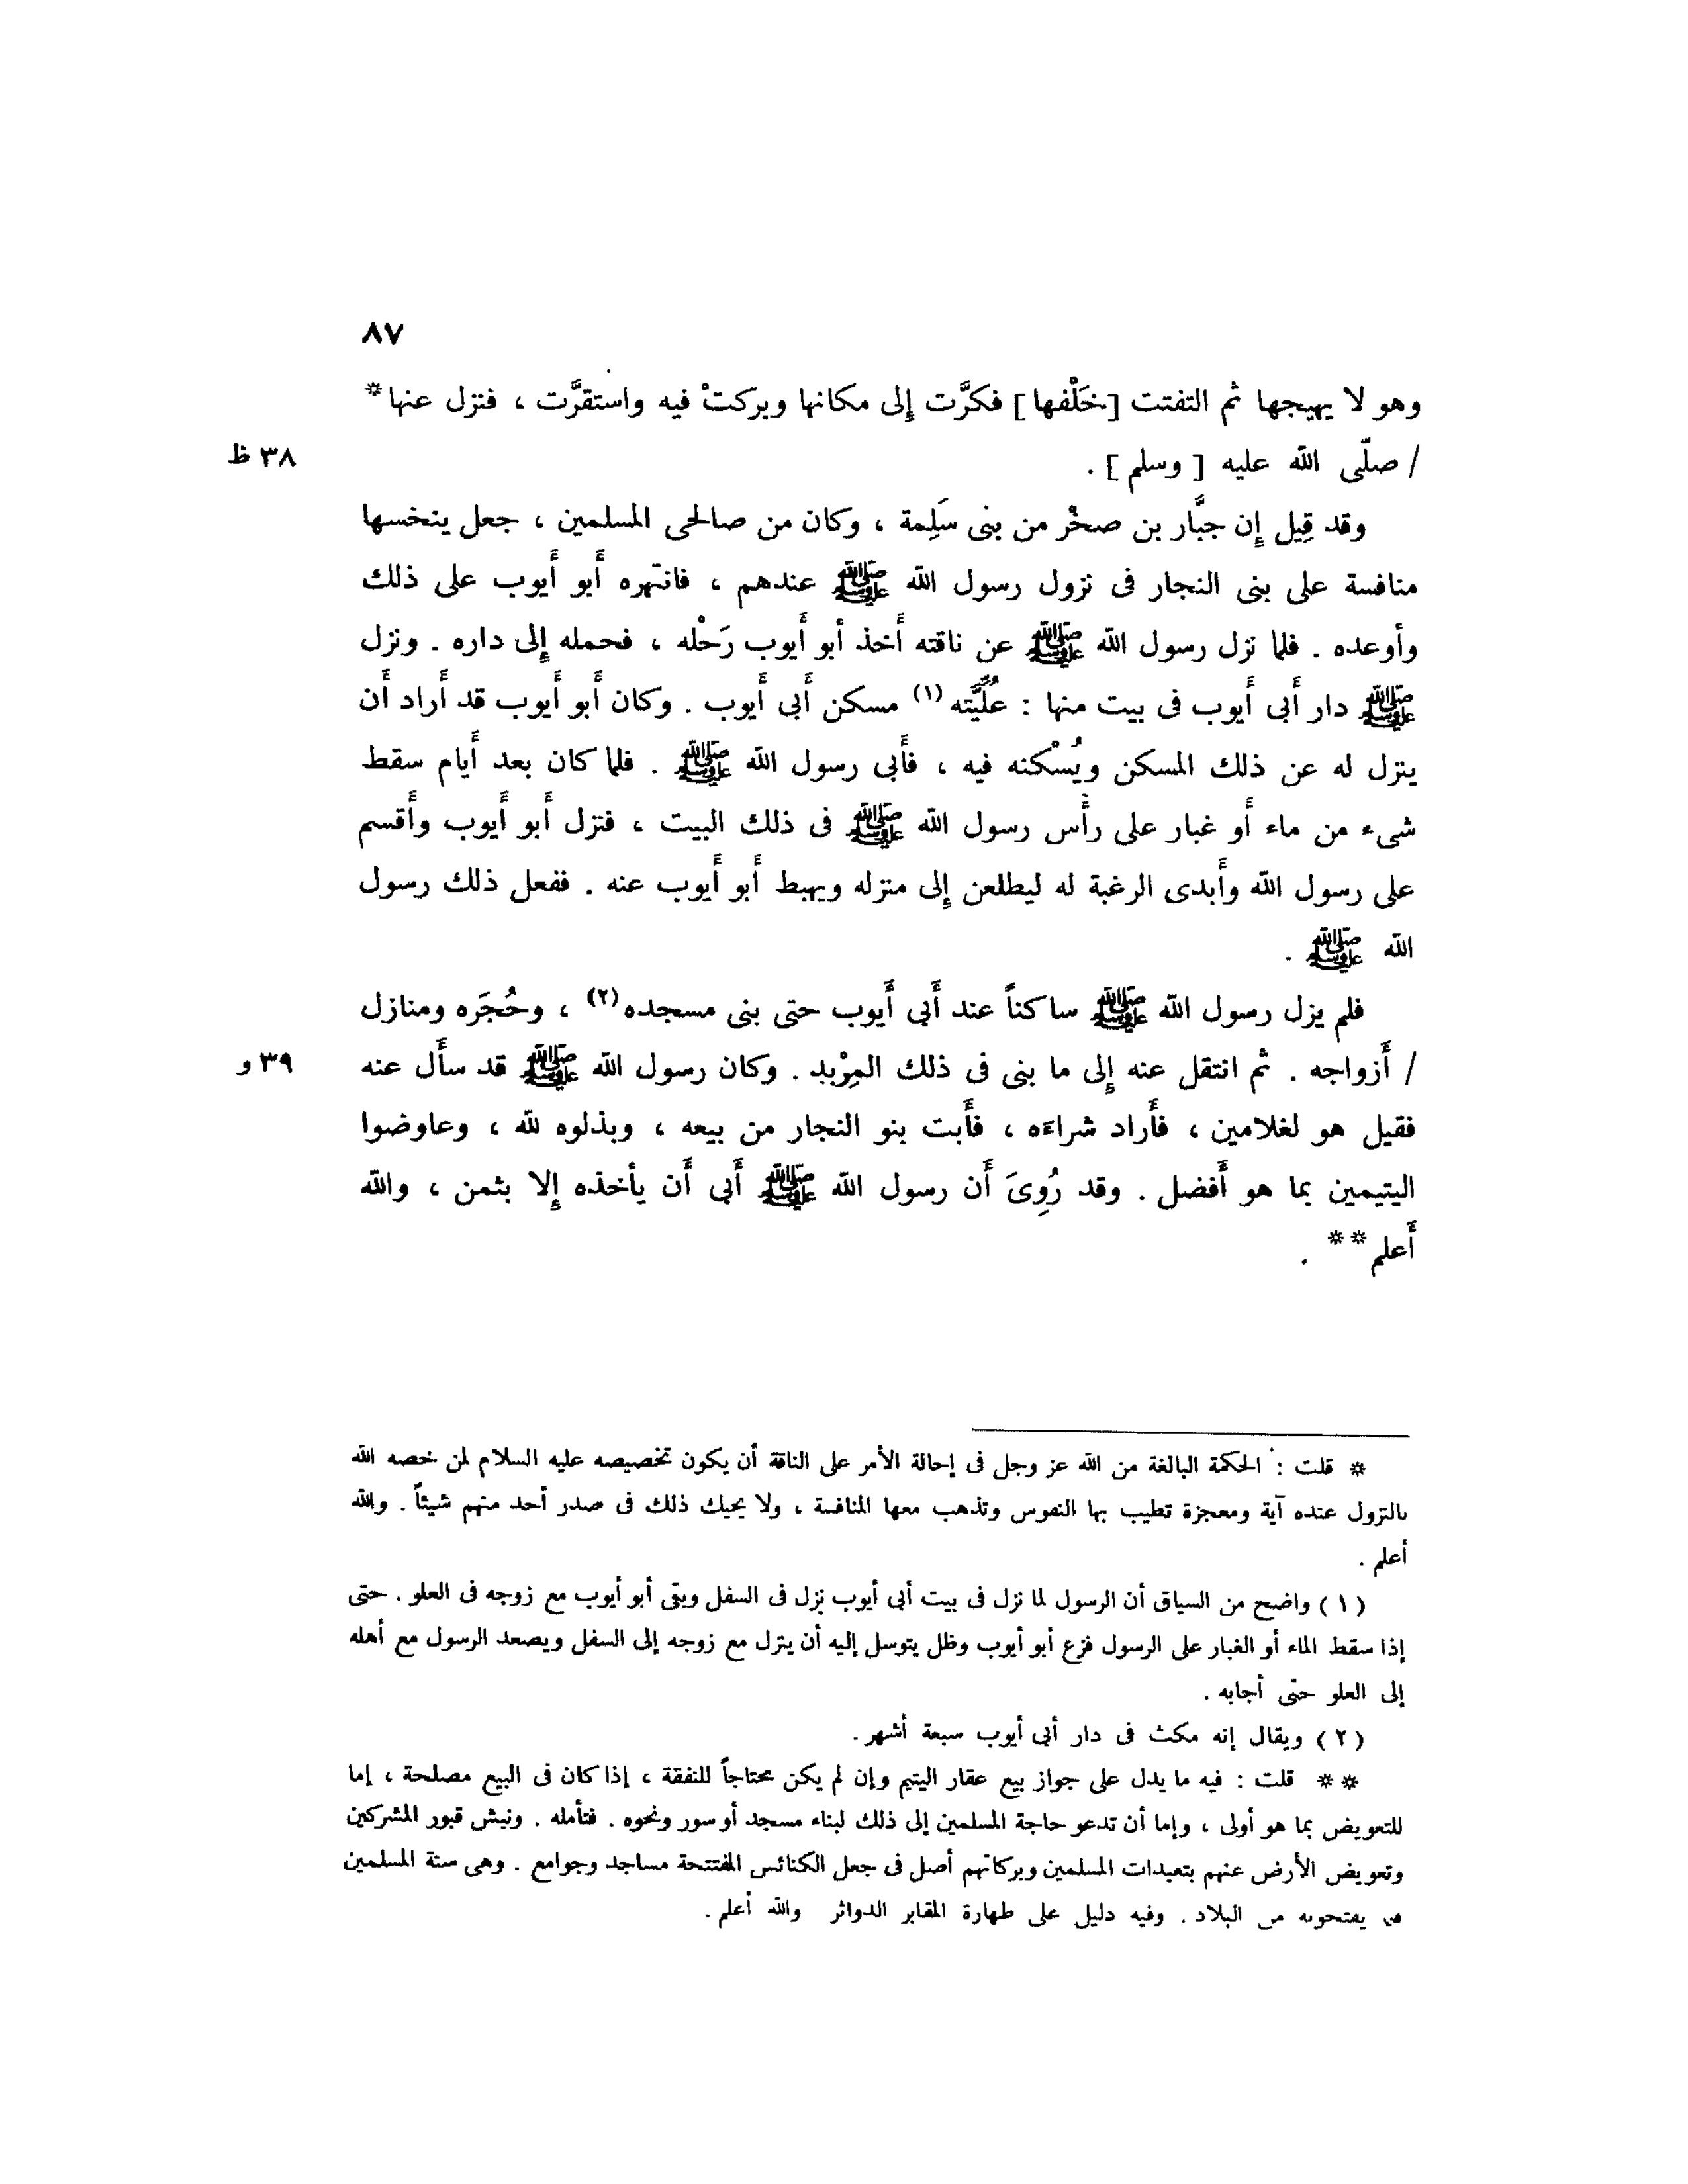 ٨٧
وهو لا يهيجها ثم التفتت [خَلْفها] فكرَّت إلى مكانها وبركتْ فيه واستقرَّت ، فنزل عنها*
/ صلّى الله عليه [ وسلم ] . ٣٨ ظ
وقد قِيل إن جبَّار بن صخْر من بنى سَلِمة ، وكان من صالحى المسلمين ، جعل ينخسها
منافسة على بنى النجار فى نزول رسول الله ﷺ عندهم ، فانتهره أَبو أَيوب على ذلك
وأوعده . فلما نزل رسول الله ﷺ عن ناقته أَخذ أبو أَيوب رَحْله ، فحمله إلى داره . ونزل
ﷺ دار أَبى أَيوب فى بيت منها : عُلِّيَّته (١) مسكن أَبى أَيوب . وكان أَبو أَيوب قد أَراد أَن
ينزل له عن ذلك المسكن ويُسْكنه فيه ، فأَبى رسول الله ﷺ . فلما كان بعد أَيام سقط
شىء من ماء أَو غبار على رأْس رسول الله ﷺ فى ذلك البيت ، فنزل أَبو أَيوب وأَقسم
على رسول الله وأَبدى الرغبة له ليطلعن إلى منزله ويهبط أَبو أَيوب عنه . ففعل ذلك رسول
الله ﷺ .
فلم يزل رسول الله ﷺ ساكناً عند أَبى أَيوب حتى بنى مسجده (٢) ، وحُجَره ومنازل
/ أَزواجه . ثم انتقل عنه إلى ما بنى فى ذلك المِرْبد . وكان رسول الله ﷺ قد سأَل عنه ٣٩ و
فقيل هو لغلامين ، فأَراد شراءَه ، فأَبت بنو النجار من بيعه ، وبذلوه لله ، وعاوضوا
اليتيمين بما هو أَفضل . وقد رُوِىَ أَن رسول الله ﷺ أَبى أَن يأخذه إلا بثمن ، والله
أَعلم ** .
* قلت : الحكمة البالغة من الله عز وجل فى إحالة الأمر على الناقة أن يكون تخصيصه عليه السلام لمن خصه الله
بالنزول عنده آية ومعجزة تطيب بها النفوس وتذهب معها المنافسة ، ولا يحيك ذلك فى صدر أحد منهم شيئاً . والله
أعلم .
( ١ ) واضح من السياق أن الرسول لما نزل فى بيت أبى أيوب نزل فى السفل وبقى أبو أيوب مع زوجه فى العلو . حتى
إذا سقط الماء أو الغبار على الرسول فزع أبو أيوب وظل يتوسل إليه أن ينزل مع زوجه إلى السفل ويصعد الرسول مع أهله
إلى العلو حتى أجابه .
( ٢ ) ويقال إنه مكث فى دار أبى أيوب سبعة أشهر .
** قلت : فيه ما يدل على جواز بيع عقار اليتيم وإن لم يكن محتاجاً للنفقة ، إذا كان فى البيع مصلحة ، إما
للتعويض بما هو أولى ، وإما أن تدعو حاجة المسلمين إلى ذلك لبناء مسجد أو سور ونحوه . فتأمله . ونبش قبور المشركين
وتعويض الأرض عنهم بتعبدات المسلمين وبركاتهم أصل فى جعل الكنائس المفتتحة مساجد وجوامع . وهى سنة المسلمين
يفتحونه من البلاد . وفيه دليل على طهارة المقابر الدواثر والله أعلم .